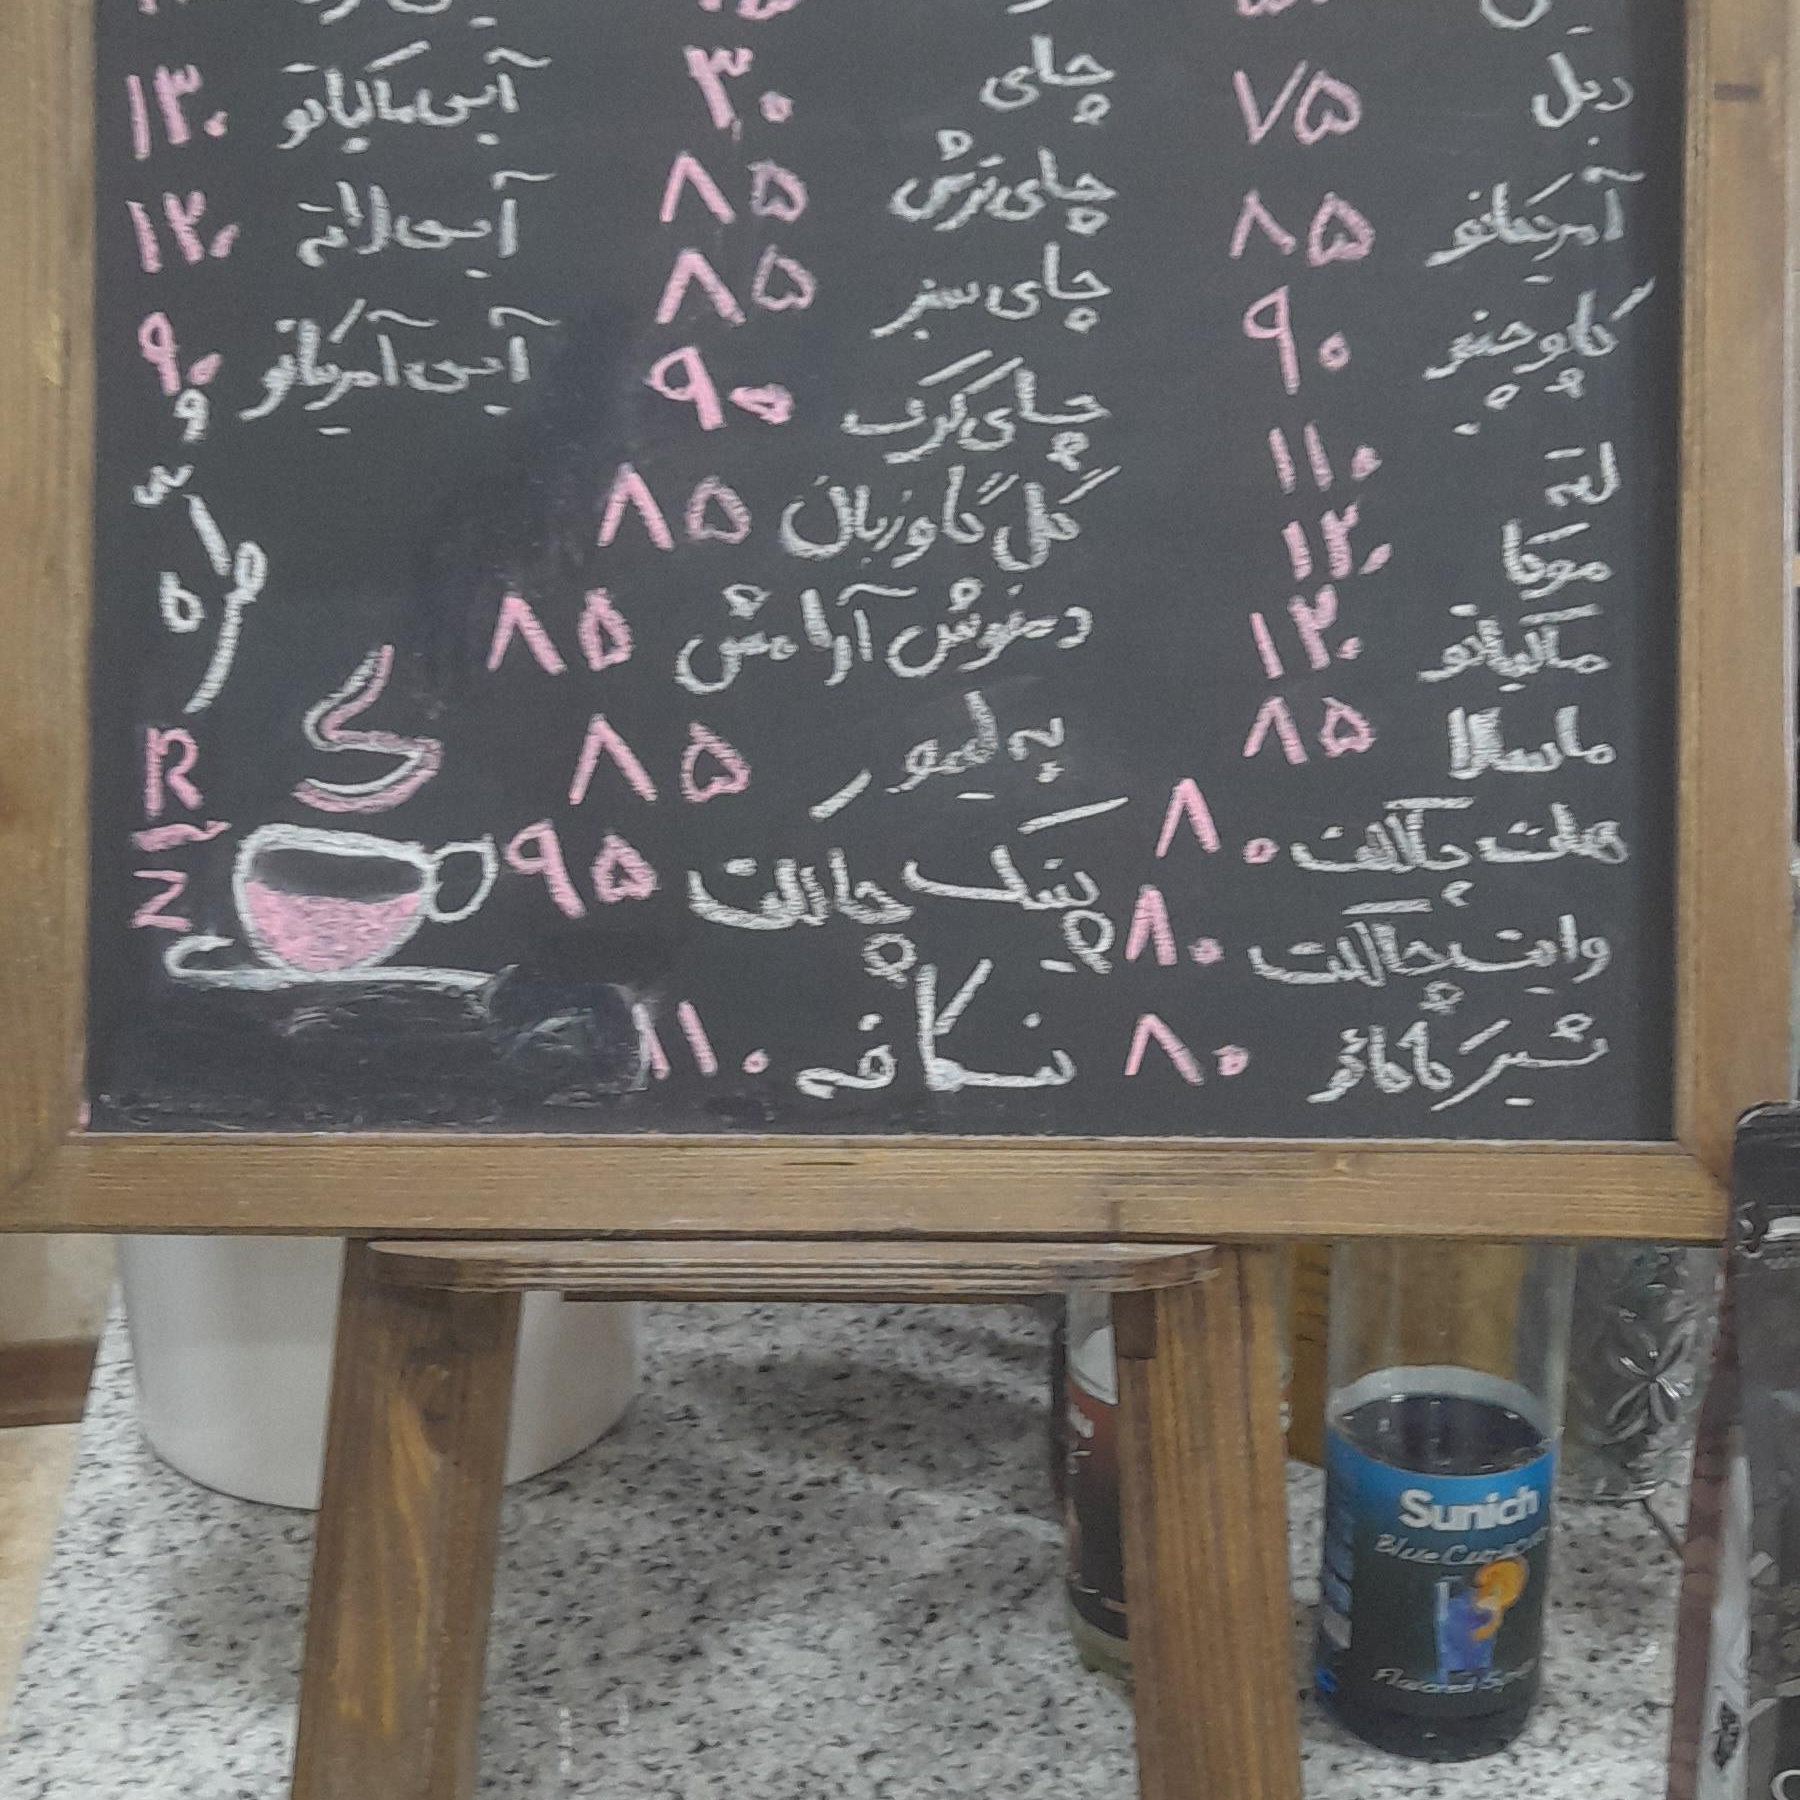 دبل ۷۵
آمریکانو ۸۵
کاپوچینو ۹۰
لته ۱۱۰
موکا ۱۳۰
ماکیاتو ۱۳۰
ماسالا ۸۵
هات چاکلت ۸۰
وایت چاکلت ۸۰
شیر کاکائو ۸۰
چای ۳۰
چای ترش ۸۵
چای سبز ۸۵
چای کرک ۹۰
گل گاوزبان ۸۵
دمنوش آرامش ۸۵
به لیمو ۸۵
پینک چاکلت ۹۵
نسکافه ۱۱۰
آیس ماکیاتو ۱۳۰
آیس لاته ۱۲۰
آیس آمریکانو ۹۰
R
Z
Sunich
Blue Curacao